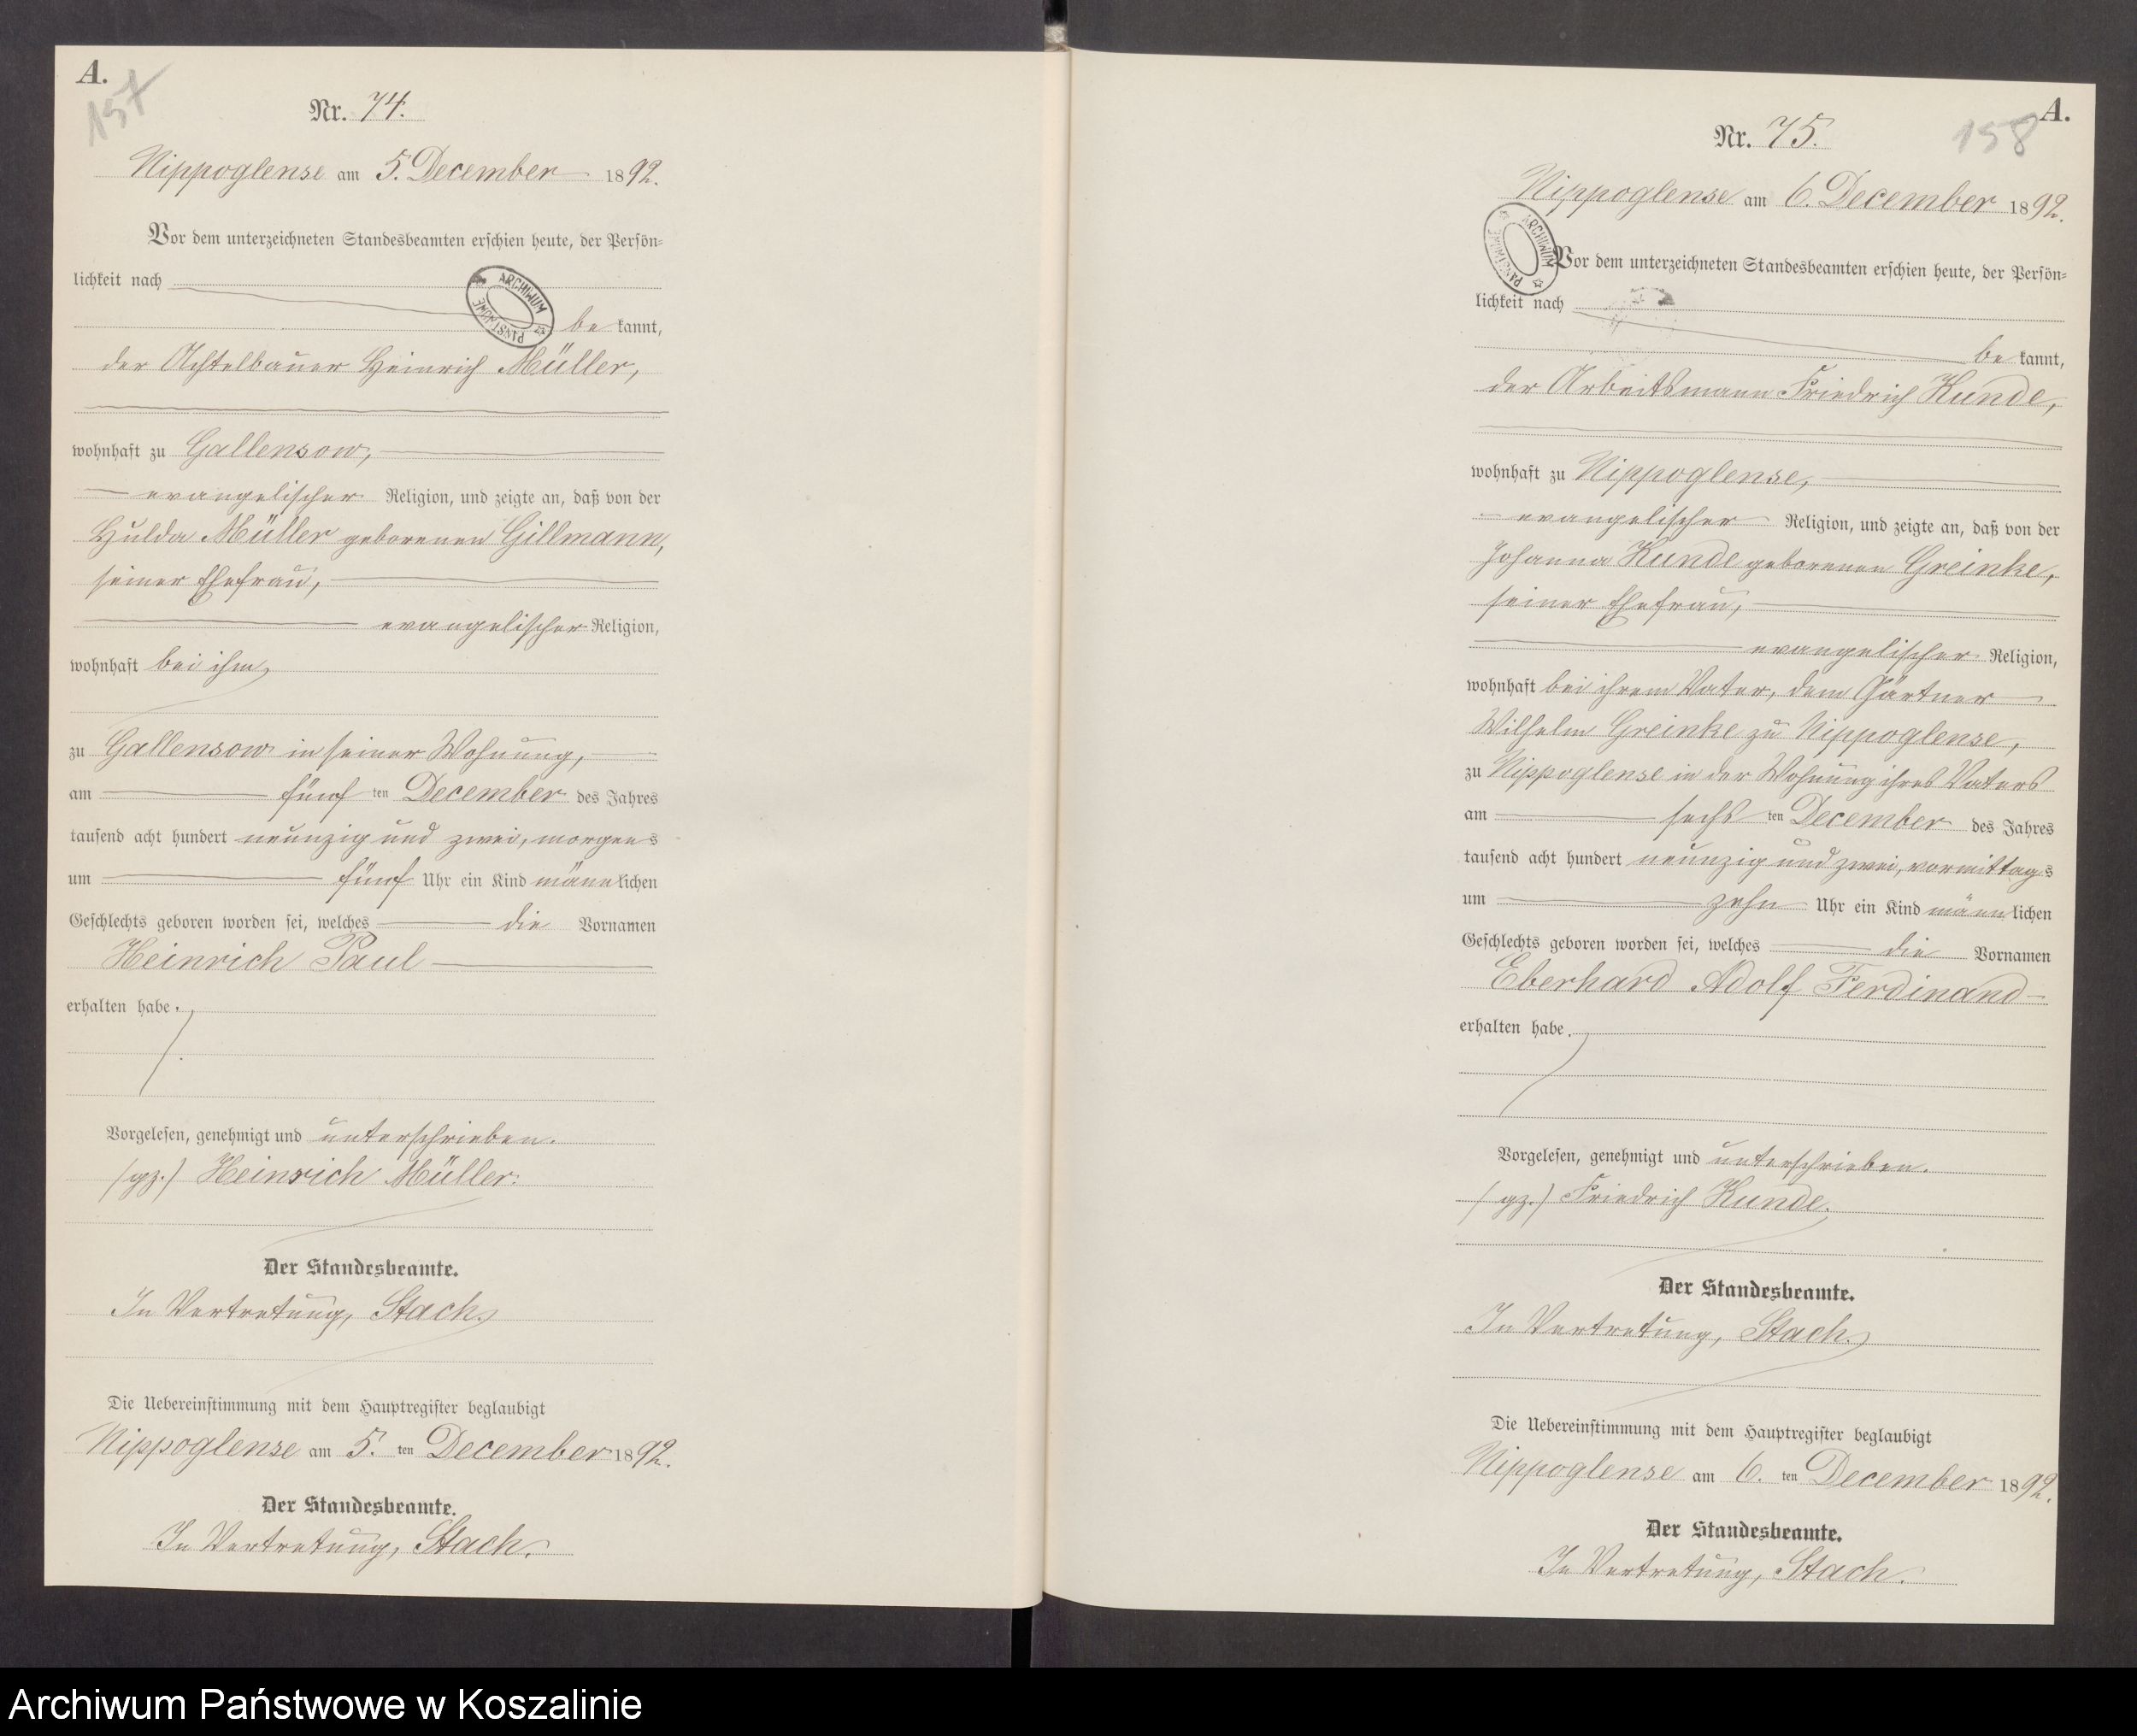 A.
157
Nr. 74.
Nippoglense am 5. December 1892.
Vor dem unterzeichneten Standesbeamten erschien heute, der Persön-
lichkeit nach
be kannt,
der Achtelbauer Heinrich Müller,
wohnhaft zu Gallensow,
evangelischer Religion, und zeigte an, daß von der
Hulda Müller geborenen Gillmann,
seiner Ehefrau,
evangelischer Religion,
wohnhaft bei ihm,
zu Gallensow in seiner Wohnung,
am fünf ten December des Jahres
tausend acht hundert neunzig und zwei, morgens
um fünf Uhr ein Kind männlichen
Geschlechts geboren worden sei, welches die Vornamen
Heinrich Paul
erhalten habe.
Vorgelesen, genehmigt und unterschrieben.
(gz.) Heinrich Müller.
Der Standesbeamte.
In Vertretung, Stach.
Die Uebereinstimmung mit dem Hauptregister beglaubigt
Nippoglense am 5. ten December 1892.
Der Standesbeamte.
In Vertretung, Stach.
ARCHIWUM PAŃSTWOWE
A.
158
Nr. 75.
Nippoglense am 6. December 1892.
Vor dem unterzeichneten Standesbeamten erschien heute, der Persön-
lichkeit nach
be kannt,
der Arbeitsmann Friedrich Kunde,
wohnhaft zu Nippoglense,
evangelischer Religion, und zeigte an, daß von der
Johanna Kunde geborenen Greinke,
seiner Ehefrau,
evangelischer Religion,
wohnhaft bei ihrem Vater, dem Gärtner
Wilhelm Greinke zu Nippoglense,
zu Nippoglense in der Wohnung ihres Vaters
am sechs ten December des Jahres
tausend acht hundert neunzig und zwei, vormittags
um zehn Uhr ein Kind männlichen
Geschlechts geboren worden sei, welches die Vornamen
Eberhard Adolf Ferdinand
erhalten habe.
Vorgelesen, genehmigt und unterschrieben.
(gz.) Friedrich Kunde.
Der Standesbeamte.
In Vertretung, Stach.
Die Uebereinstimmung mit dem Hauptregister beglaubigt
Nippoglense am 6. ten December 1892.
Der Standesbeamte.
In Vertretung, Stach.
ARCHIWUM PAŃSTWOWE
Archiwum Państwowe w Koszalinie